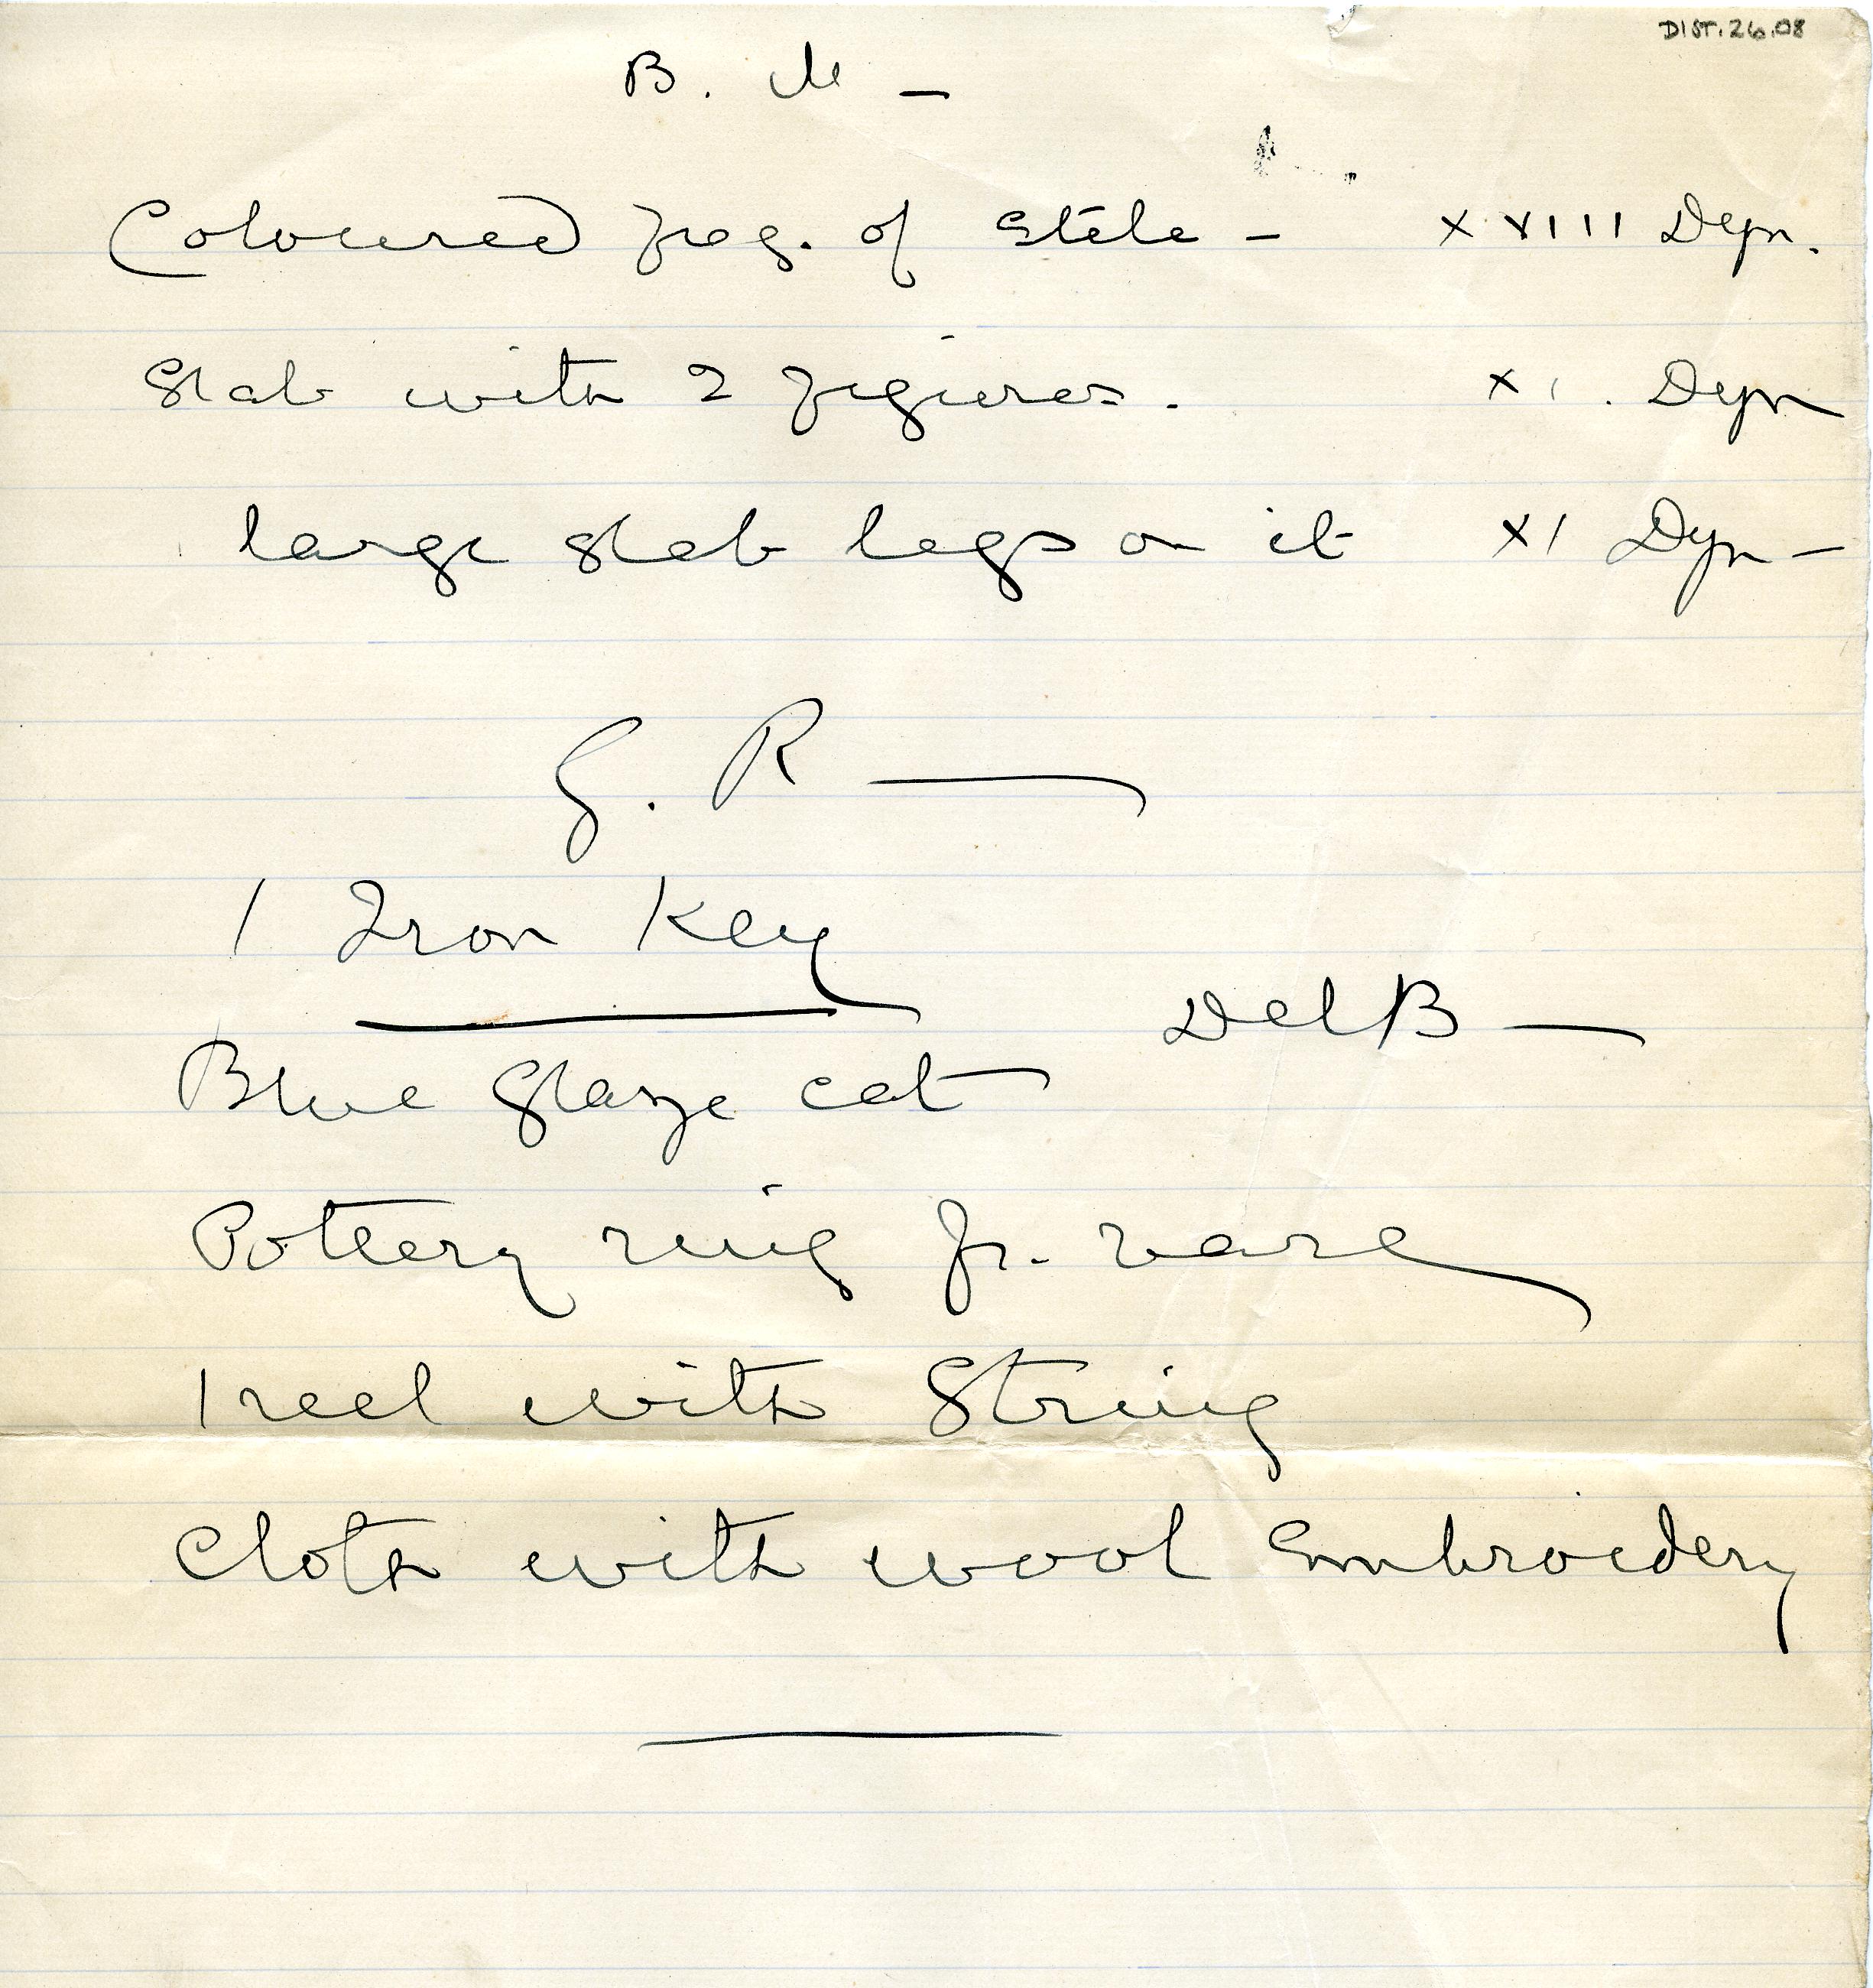 DIST.26.08
B. M -
Coloured frag. of Stele - XVIII Dyn.
Slab with 2 figures. XI. Dyn
large slab legs on it XI Dyn -
G. R —
1 Iron Key
Del B —
Blue Glaze cat
Pottery ring fr. vase
1 reel with String
Cloth with wool Embroidery